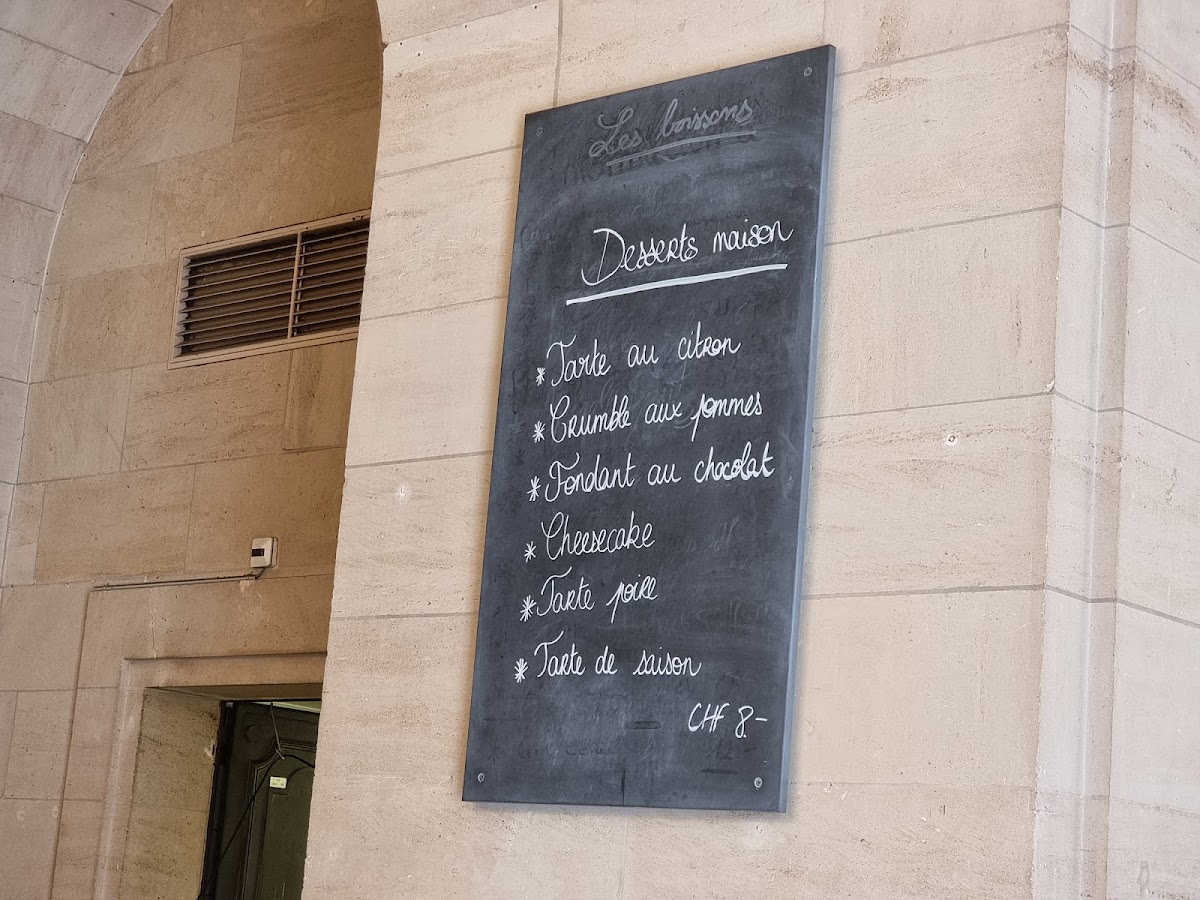 Les boissons
Desserts maison
* Tarte au citron
* Crumble aux pommes
* Fondant au chocolat
* Cheesecake
* Tarte poire
* Tarte de saison
CHF 8.-